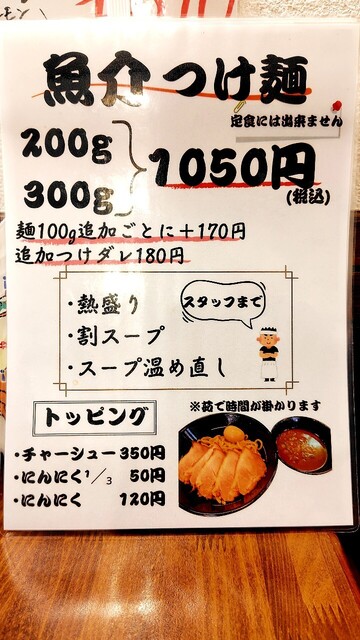 魚介つけ麺
定食には出来ません
200g
300g
1050円
(税込)
麺100g追加ごとに＋170円
追加つけダレ180円
・熱盛り
・割スープ
・スープ温め直し
スタッフまで
トッピング
※茹で時間が掛かります
・チャーシュー350円
・にんにく1/3 50円
・にんにく 120円